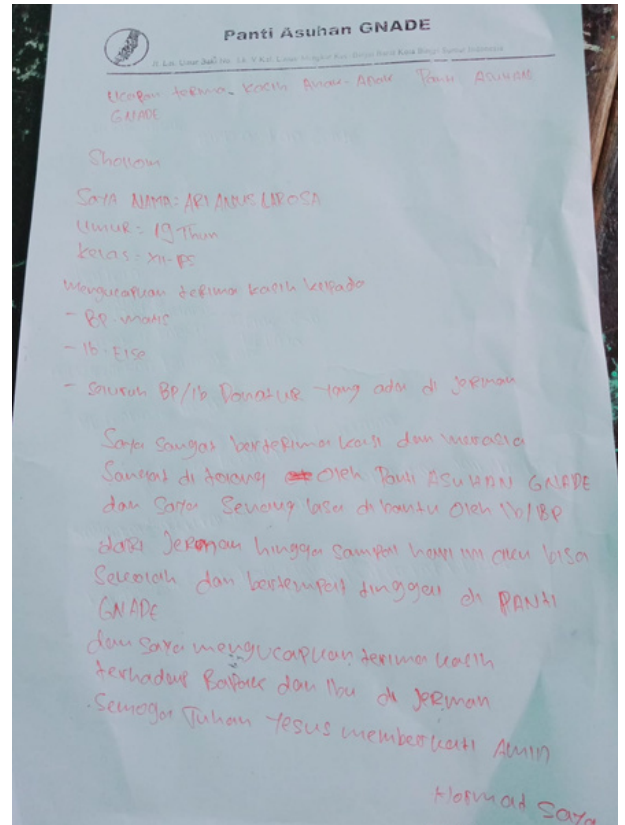 Panti Asuhan GNADE
Ucapan terima kasih Anak-Anak Panti ASUHAN
GNADE
Shallom
SAYA NAMA: ARI ANUS LAROSA
UMUR = 19 Thun
Kelas = XII-IPS
Mengucapkan terima kasih kepada
- BP.
- Ib. Else
- Seluruh BP/Ib Donatur yang ada di jerman
Saya sangat berterima kasi dan merasa
Sangat di oleh Panti ASUHAN GNADE
dan Saya Senang bisa di bantu oleh Ib/BP
dari Jerman hingga sampai hari ini bisa
Sekolah dan bertempat tinggal di PANTI
GNADE
dan Saya mengucapkan terima kasih
terhadap Bapak dan Ibu di Jerman
. Semoga Tuhan Yesus memberkati Amin
Hormat Saya